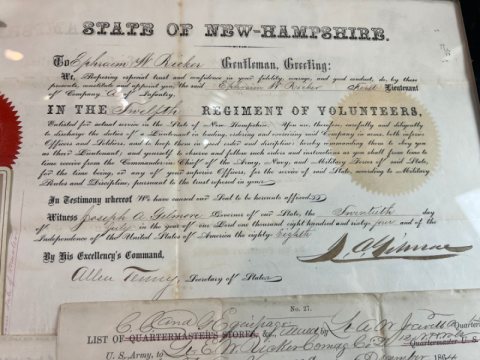 STATE OF NEW-HAMPSHIRE.
To Ephraim W Ricker Gentleman, Greeting:
We, Reposing especial trust and confidence in your fidelity, courage, and good conduct, do, by these
presents, constitute and appoint you, the said Ephraim W Ricker First Lieutenant
of Company A of Infantry,
IN THE Twelfth REGIMENT OF VOLUNTEERS,
Enlisted for actual service in the State of New Hampshire. You are, therefore, carefully and diligently
to discharge the duties of a Lieutenant in leading, ordering and exercising said Company in arms, both inferior
Officers and Soldiers, and to keep them in good order and discipline; hereby commanding them to obey you
as their Lieutenant; and yourself to observe and follow such orders and instructions as you shall from time to
time receive from the Commander-in-Chief of the Army, Navy, and Military Forces of said State,
for the time being, or any of your superior Officers, for the service of said State, according to Military
Rules and Discipline, pursuant to the trust reposed in you.
In Testimony whereof We have caused our Seal to be hereunto affixed.
Witness Joseph A. Gilmore Governor of our State, the Twentieth day
of July in the year of our Lord one thousand eight hundred and sixty four and of the
Independence of the United States of America the eighty Eighth
By His Excellency's Command, J. A. Gilmore
Allen Tenny, Secretary of State.
No. 27.
LIST OF QUARTERMASTER'S STORES, &c.,
U.S. Army, to
1864